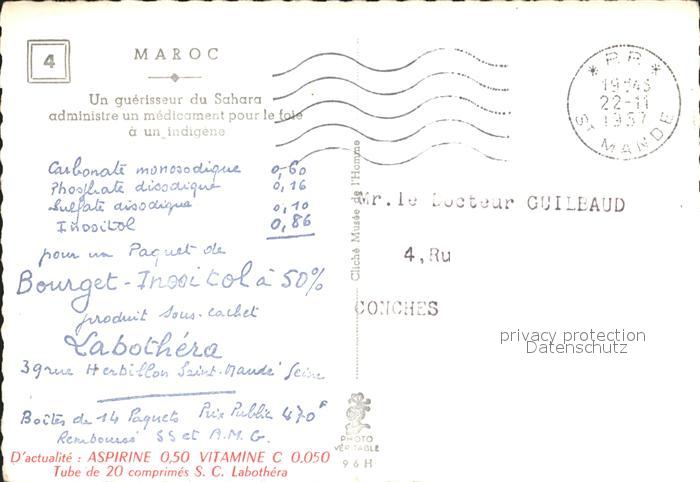 4
MAROC
Un guérisseur du Sahara
administre un médicament pour le foie
à un indigène
Carbonate monosodique 0,60
Phosphate disodique 0,16
Sulfate disodique 0,10
Inositol 0,86
pour un Paquet de
Bourget-Inositol à 50%
produit sous-cachet
Labothéra
39 rue Herbillon Saint-Mandé Seine
Boîtes de 14 Paquets Prix Public 470F
Remboursé SS et A.M.G.
D'actualité : ASPIRINE 0,50 VITAMINE C 0,050
Tube de 20 comprimés S. C. Labothéra
Cliché Musée de l'Homme
PHOTO
VÉRITABLE
96H
* P.P. *
19H45
22-11
1957
ST MANDE
Mr.le Docteur GUILBAUD
4,Ru
CONCHES
privacy protection
Datenschutz